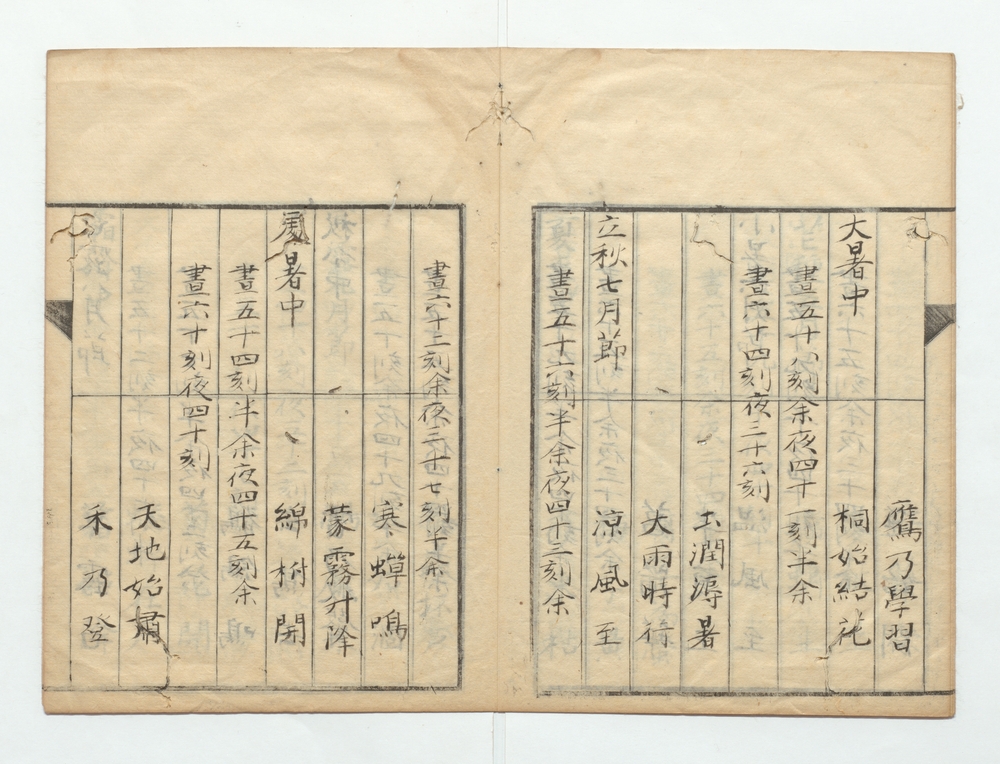 鷹乃學習
大暑中
桐始結花
晝五十八刻余夜四十一刻半余
晝六十四刻夜三十六刻
土潤溽暑
大雨時行
立秋七月節
涼風至
晝五十六刻半余夜四十三刻余
晝六十二刻余夜三十七刻半余
寒蟬鳴
蒙霧升降
處暑中
綿柎開
晝五十四刻半余夜四十五刻余
晝六十刻夜四十刻
天地始肅
禾乃登